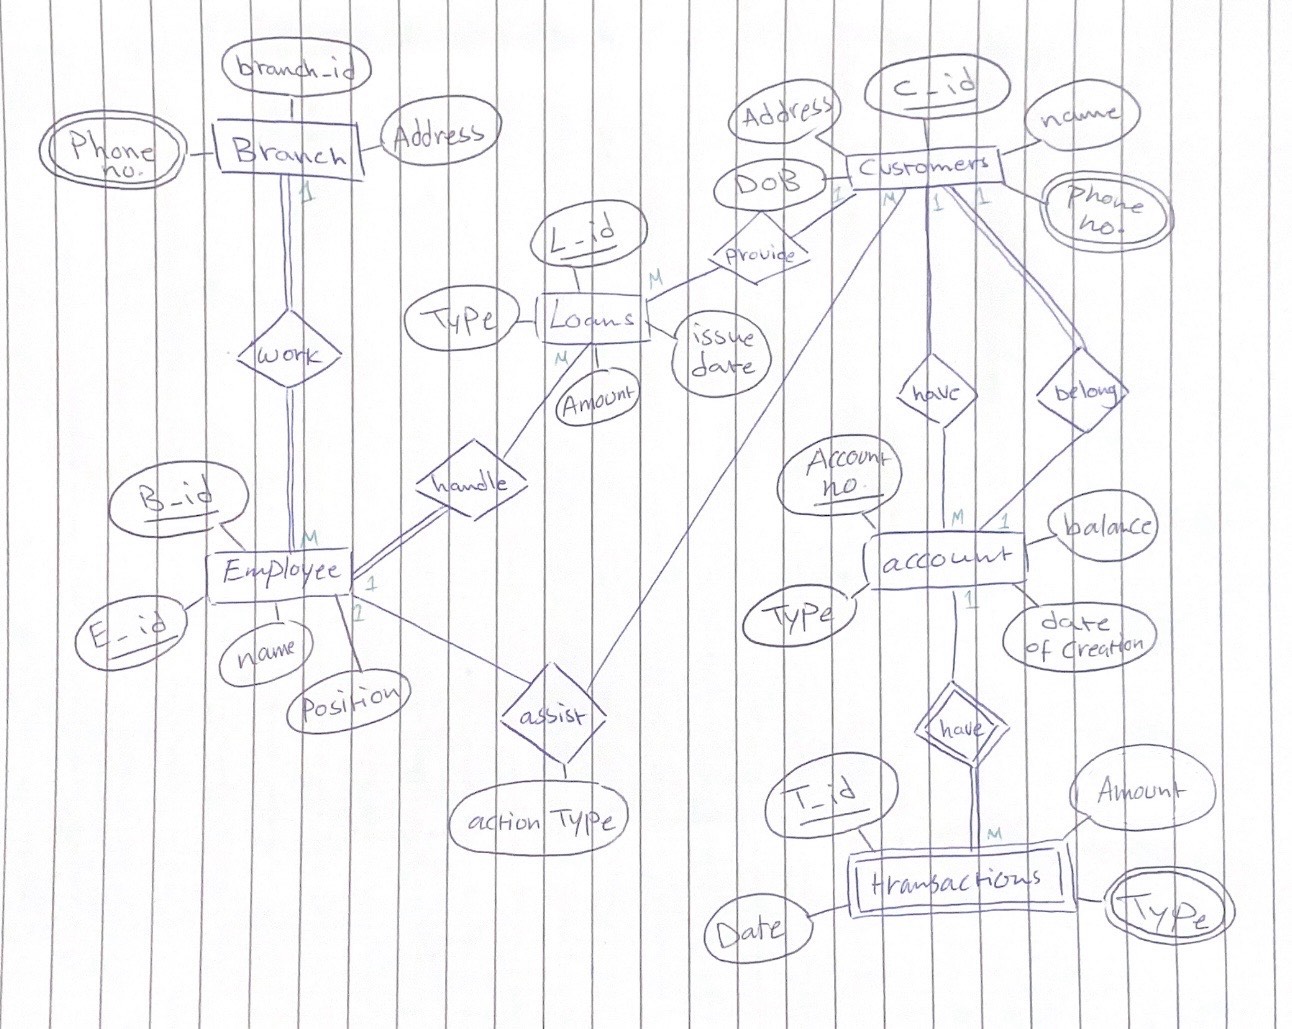 branch_id
Phone
no.
Branch
Address
1
work
M
B_id
Employee
E_id
name
Position
1
1
handle
L_id
Type
Loans
M
M
issue
date
Amount
provide
1
Address
C_id
name
DoB
Customers
Phone
no.
M
1
1
have
belong
Account
no.
M
1
balance
account
Type
date
of Creation
1
assist
action Type
have
T_id
M
Amount
transactions
Date
Type